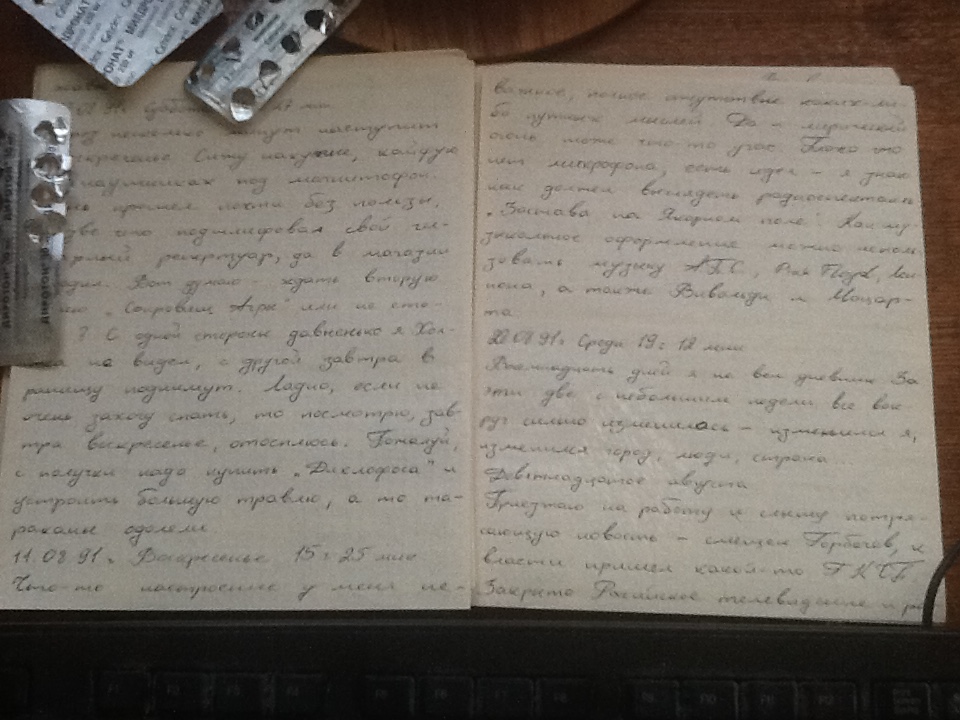 через несколько минут наступит
воскресенье Сижу на кухне, кайфую
в наушниках под магнитофон.
День прошел почти без пользы,
разве что подшлифовал свой ги-
тарный репертуар, да в магазин
ходил. Вот думаю - ждать вторую
серию "Сокровищ Агры" или не сто-
ит? С одной стороны давненько я Хол-
мса не видел, с другой завтра в
ранищу поднимут. Ладно, если не
очень захочу спать, то посмотрю, зав-
тра воскресенье, отосплюсь. Пожалуй,
с получки надо купить "Дихлофоса" и
устроить большую травлю, а то та-
раканы одолели
11.08.91г. Воскресенье 15ч 25 мин
Что-то настроение у меня не-
важное, полное отсутствие каких-ли-
бо путных мыслей Да и лирический
огонь тоже что-то угас. Плохо что
нет микрофона, есть идея - я знаю
как должен выглядеть радиоспектакль
"Застава на Якорном поле". Как му-
зыкальное оформление можно исполь-
зовать музыку Pink Floyd, Лен-
нона, а также Вивальди и Моцар-
та
28.08.91г Среда 19ч 12 мин
Восемнадцать дней я не вел дневник За
эти две с небольшим недели все вок-
руг сильно изменилось - изменился я,
изменился город, люди, страна...
Девятнадцатое августа
Приезжаю на работу и слышу потря-
сающую новость - смещен Горбачев, к
власти пришел какой-то ГКЧП
Закрыто Российское телевидение и ра
ДИРОТОН